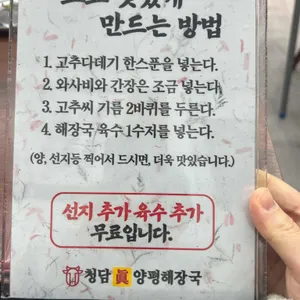 만드는 방법
1. 고추다데기 한스푼을 넣는다.
2. 와사비와 간장은 조금 넣는다.
3. 고추씨 기름 2바퀴를 두른다.
4. 해장국 육수 1수저를 넣는다.
(양, 선지등 찍어서 드시면, 더욱 맛있습니다.)
선지 추가 육수 추가
무료입니다.
청담 眞 양평해장국